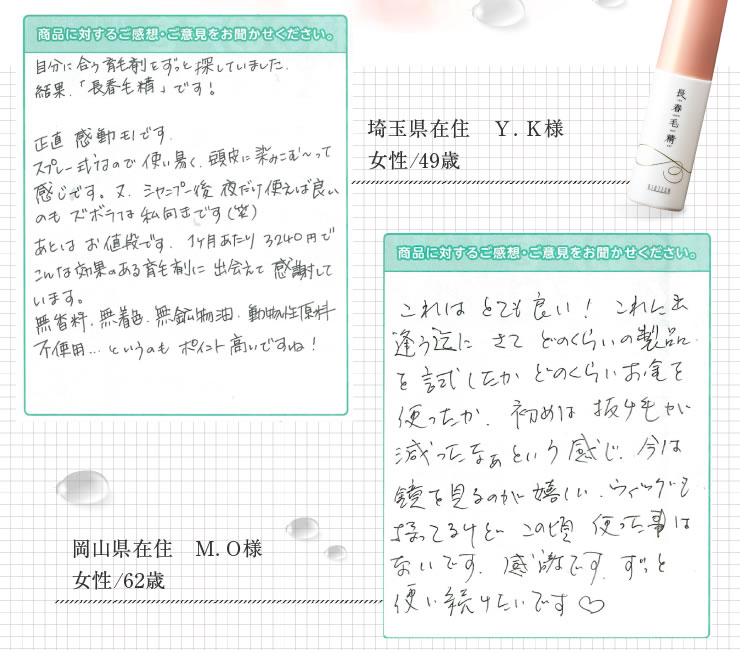 商品に対するご感想・ご意見をお聞かせください。
自分に合う育毛剤をずっと探していました。
結果、「長春毛精」です!
正直 感動モノです。
スプレー式なので使い易く、頭皮に染みこむ〜って
感じです。又、シャンプー後 夜だけ使えば良い
のも ズボラな私向きです(笑)
あとは お値段です。1ヶ月あたり 3240円で
こんな効果のある育毛剤に出会えて 感謝して
います。
無香料、無着色、無鉱物油、動物性原料
不使用…というのも ポイント高いですね!
埼玉県在住 Y.K様
女性/49歳
長春毛精
商品に対するご感想・ご意見をお聞かせください。
これは とても良い! これに出
逢う迄に さて どのくらいの製品
を試したか どのくらいお金を
使ったか、初めは 抜け毛が
減ったなぁという感じ、今は
鏡を見るのが嬉しい、ウィッグも
持ってるけど この頃 使った事は
ないです、感謝です、ずっと
使い続けたいです♡
岡山県在住 M.O様
女性/62歳